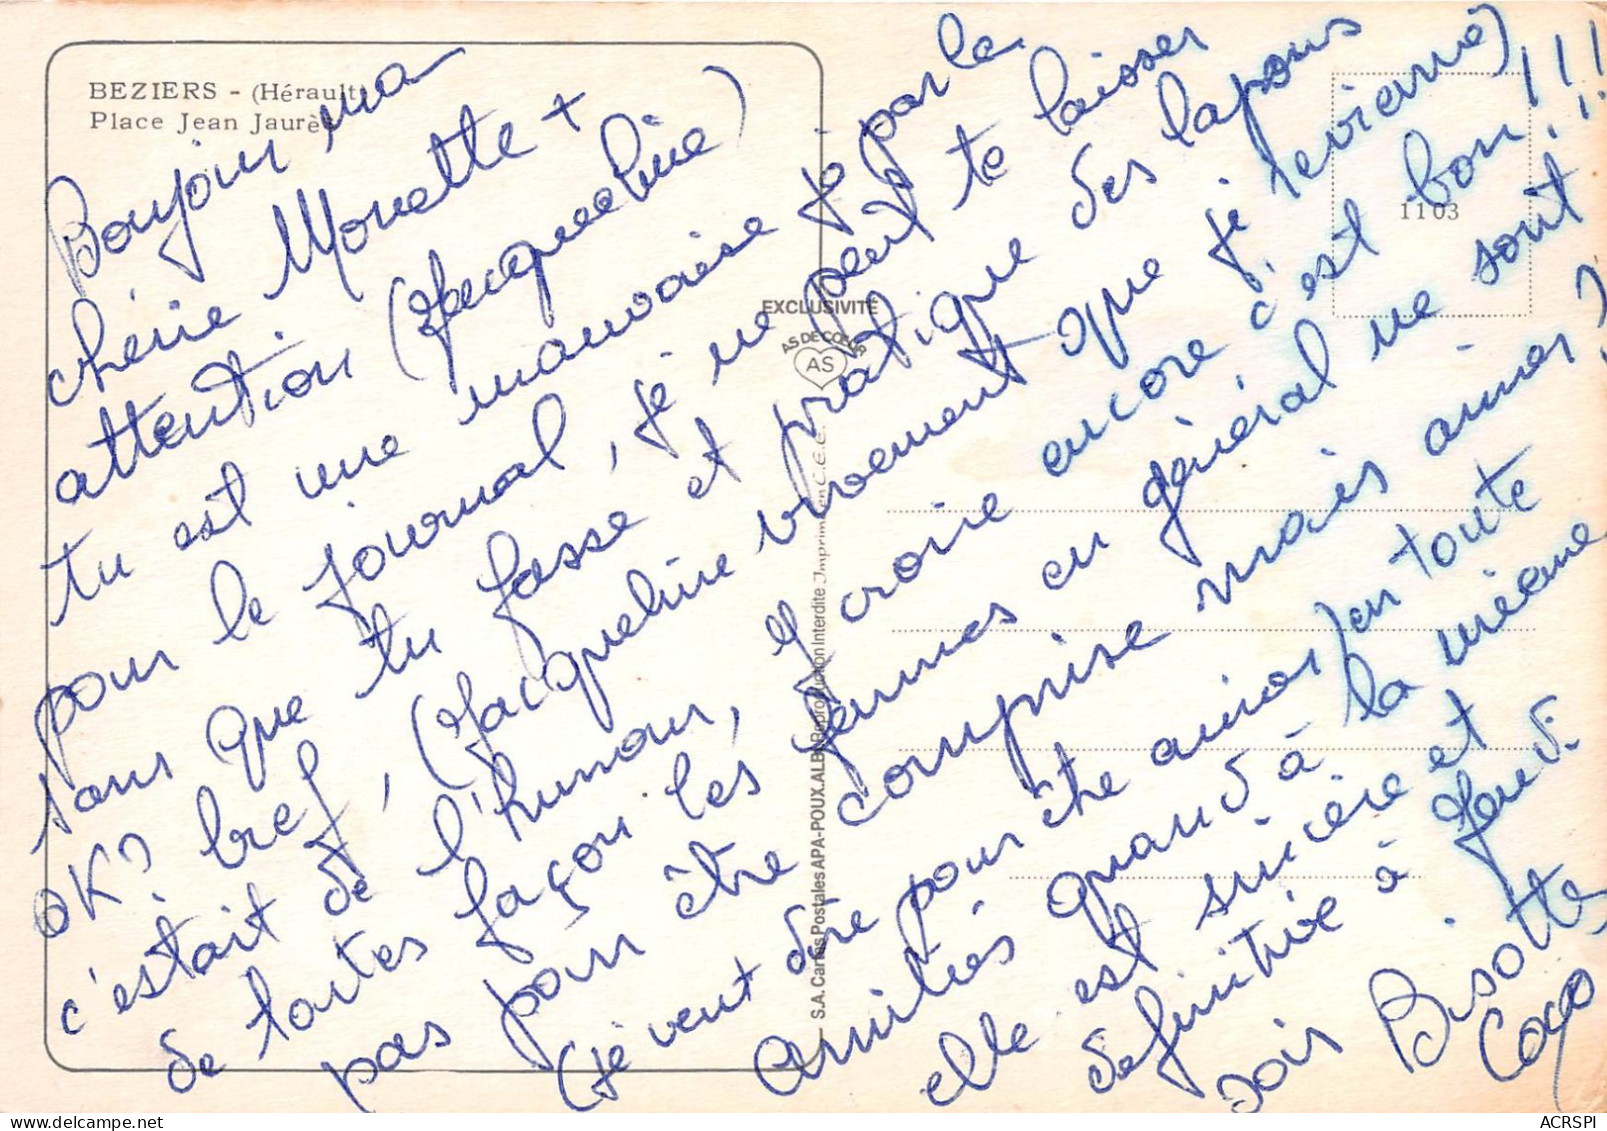 BEZIERS - (Hérault)
Place Jean Jaurès
Bonjour ma
chérie Monette +
attention (Jacqueline)
tu est une mauvaise je parle
pour le journal, je ne peut te laisser
sans que tu fasse et pratique des lapsus
OK? bref, (Jacqueline vraement que je revienne)
c'était de l'humour, croire encore c'est bon!!!
de toutes façon les femmes en général ne sont
pas pour être comprise mais aimer?
(je veut dire pour être aimer) en toute
amitiés quand à la mienne
elle est sincère et
definitive à Jeudi
soir Bisotte
Coco
EXCLUSIVITÉ
AS DE CŒUR
AS
1103
S.A. Cartes Postales APA-POUX.ALBI Reproduction Interdite Imprimé en C.E.E.
ACRSPI